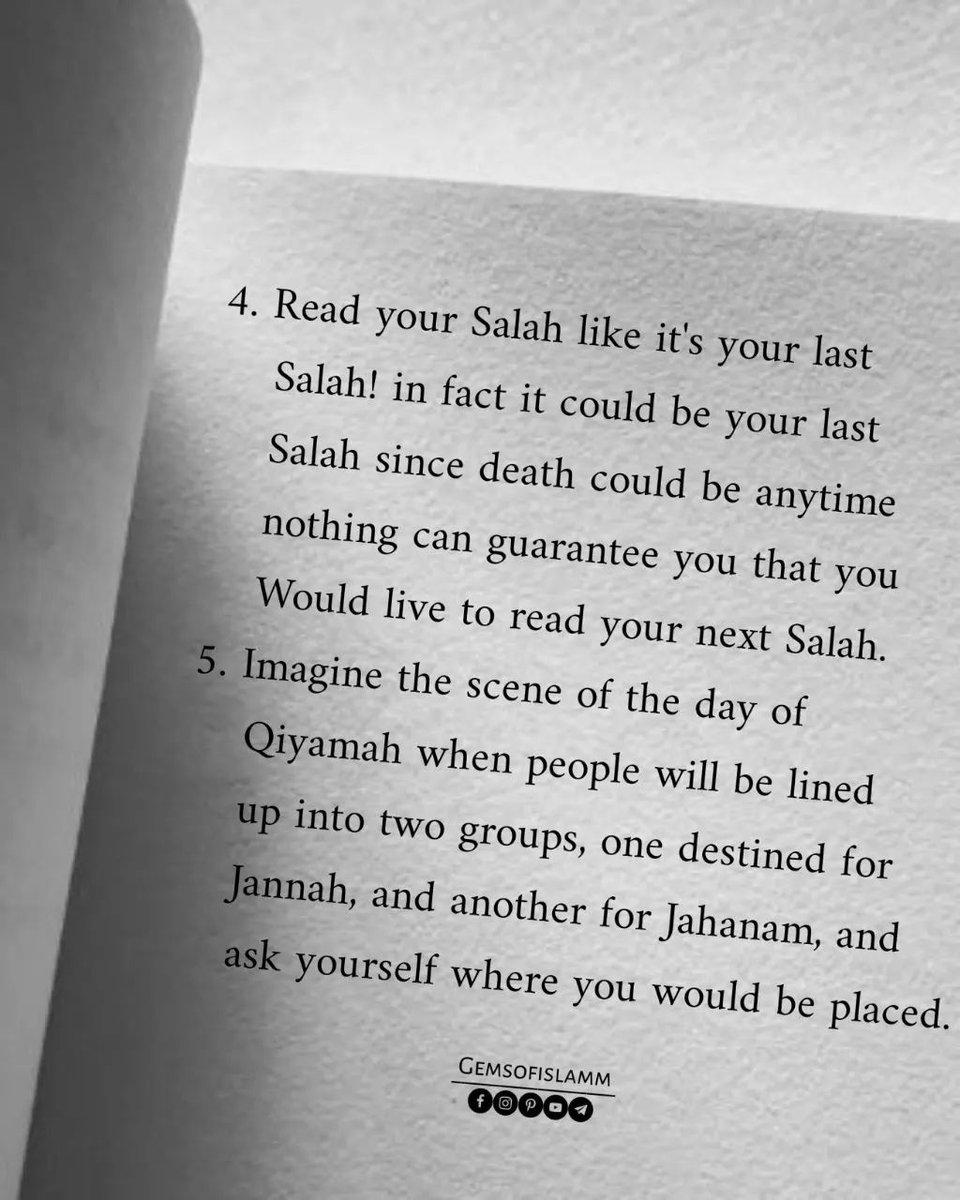 4. Read your Salah like it's your last
Salah! in fact it could be your last
Salah since death could be anytime
nothing can guarantee you that you
Would live to read your next Salah.
5. Imagine the scene of the day of
Qiyamah when people will be lined
up into two groups, one destined for
Jannah, and another for Jahanam, and
ask yourself where you would be placed.
GEMSOFISLAMM